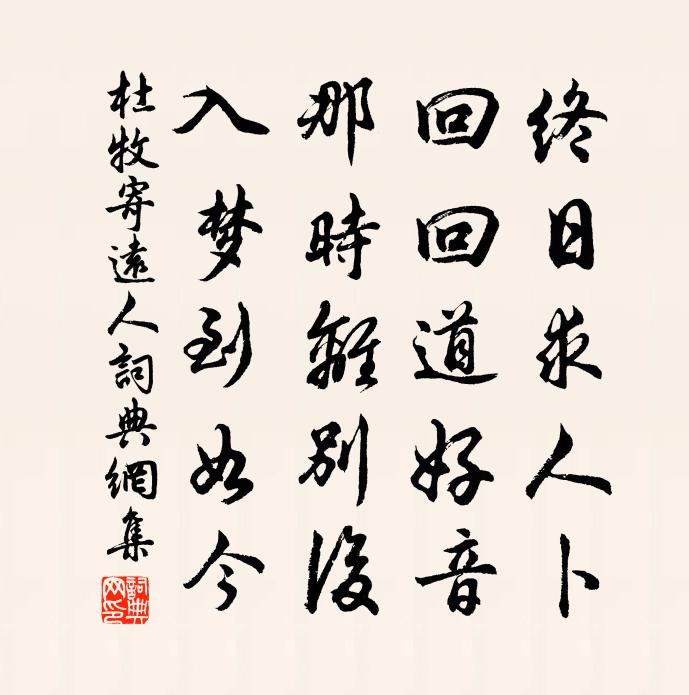 终日求人卜
回回道好音
那時離别後
入梦到如今
杜牧寄遠人詞典網集
詞典网印